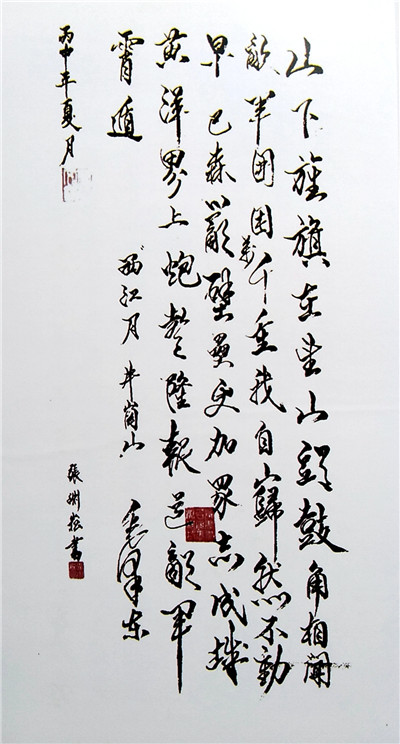 山下旌旗在望山頭鼓角相聞
敵軍圍困萬千重我自巋然不動
早已森嚴壁壘更加眾志成城
黃洋界上炮聲隆報道敵軍
霄遁
西江月 井崗山 毛澤東
丙申年夏月
張 松書